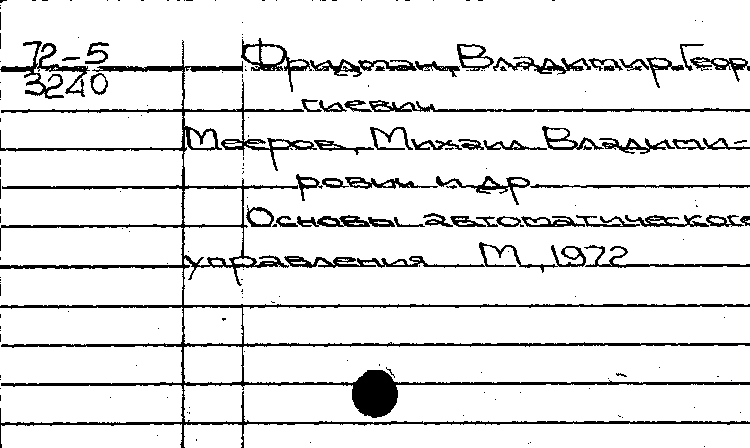 72-5
3240
Фридман, Владимир Геор
гиевич
Мееров, Михаил Владими-
рович и др
Основы автоматического
управления М, 1972